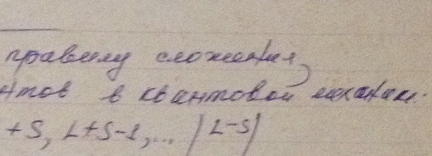 правилу сложения,
нтов в квантовой механик.
+S, L+S-1,... |L-S|